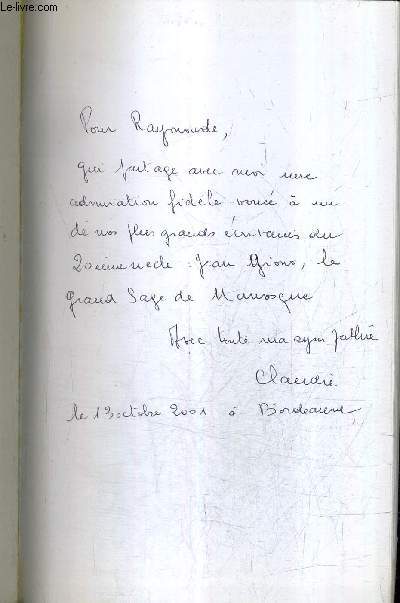 Le-livre.com
Pour Raymonde,
qui partage avec moi une
admiration fidèle vouée à un
de nos plus grands écrivains du
20ième siècle : Jean Giono, le
grand Sage de Manosque
Avec toute ma sympathie
Claudie
le 13 octobre 2001 à Bordeaux